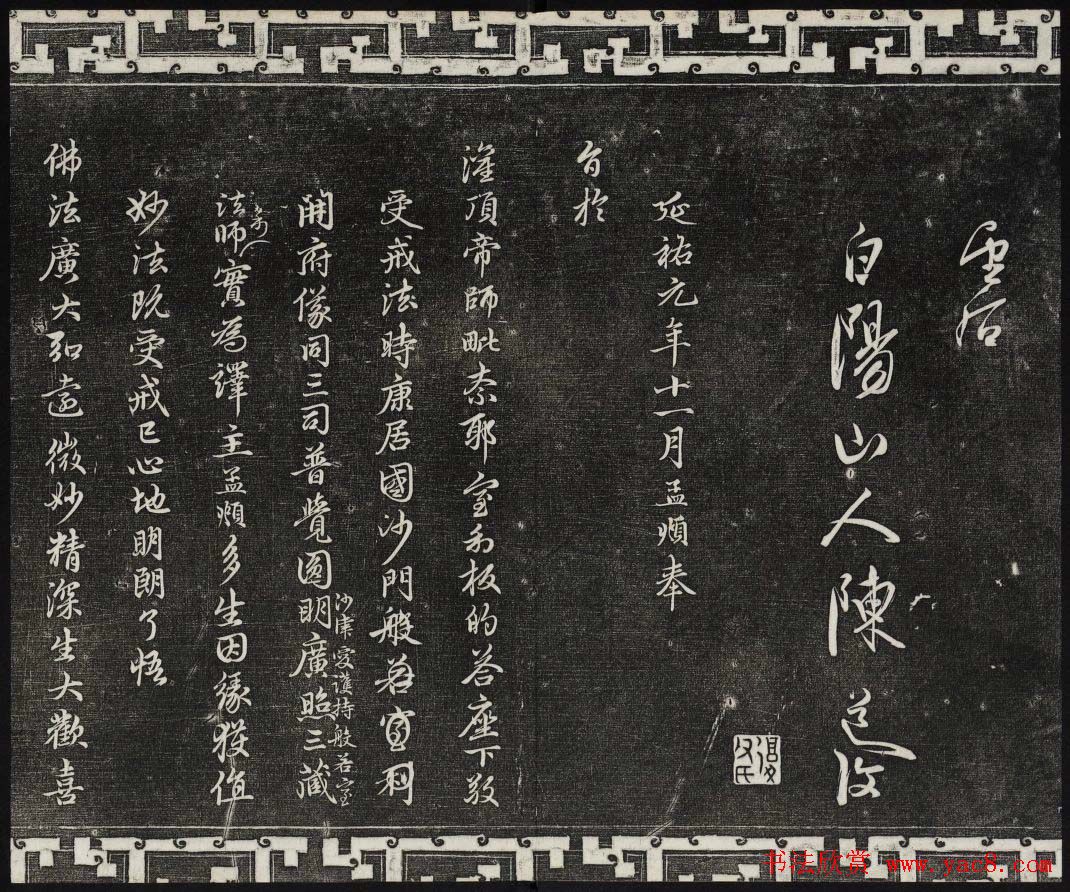 雲居
白陽山人陳道復
延祐元年十一月孟頫奉
旨於
灌頂帝師毗奈耶室利板的荅座下敬
受戒法時康居國沙門般若室利
開府儀同三司普覺圓明廣照三藏
沙津愛護持般若室利
法師實為譯主孟頫多生因緣獲值
妙法既受戒已心地明朗了悟
佛法廣大弘遠微妙精深生大歡喜
书法欣赏 www.yac8.com